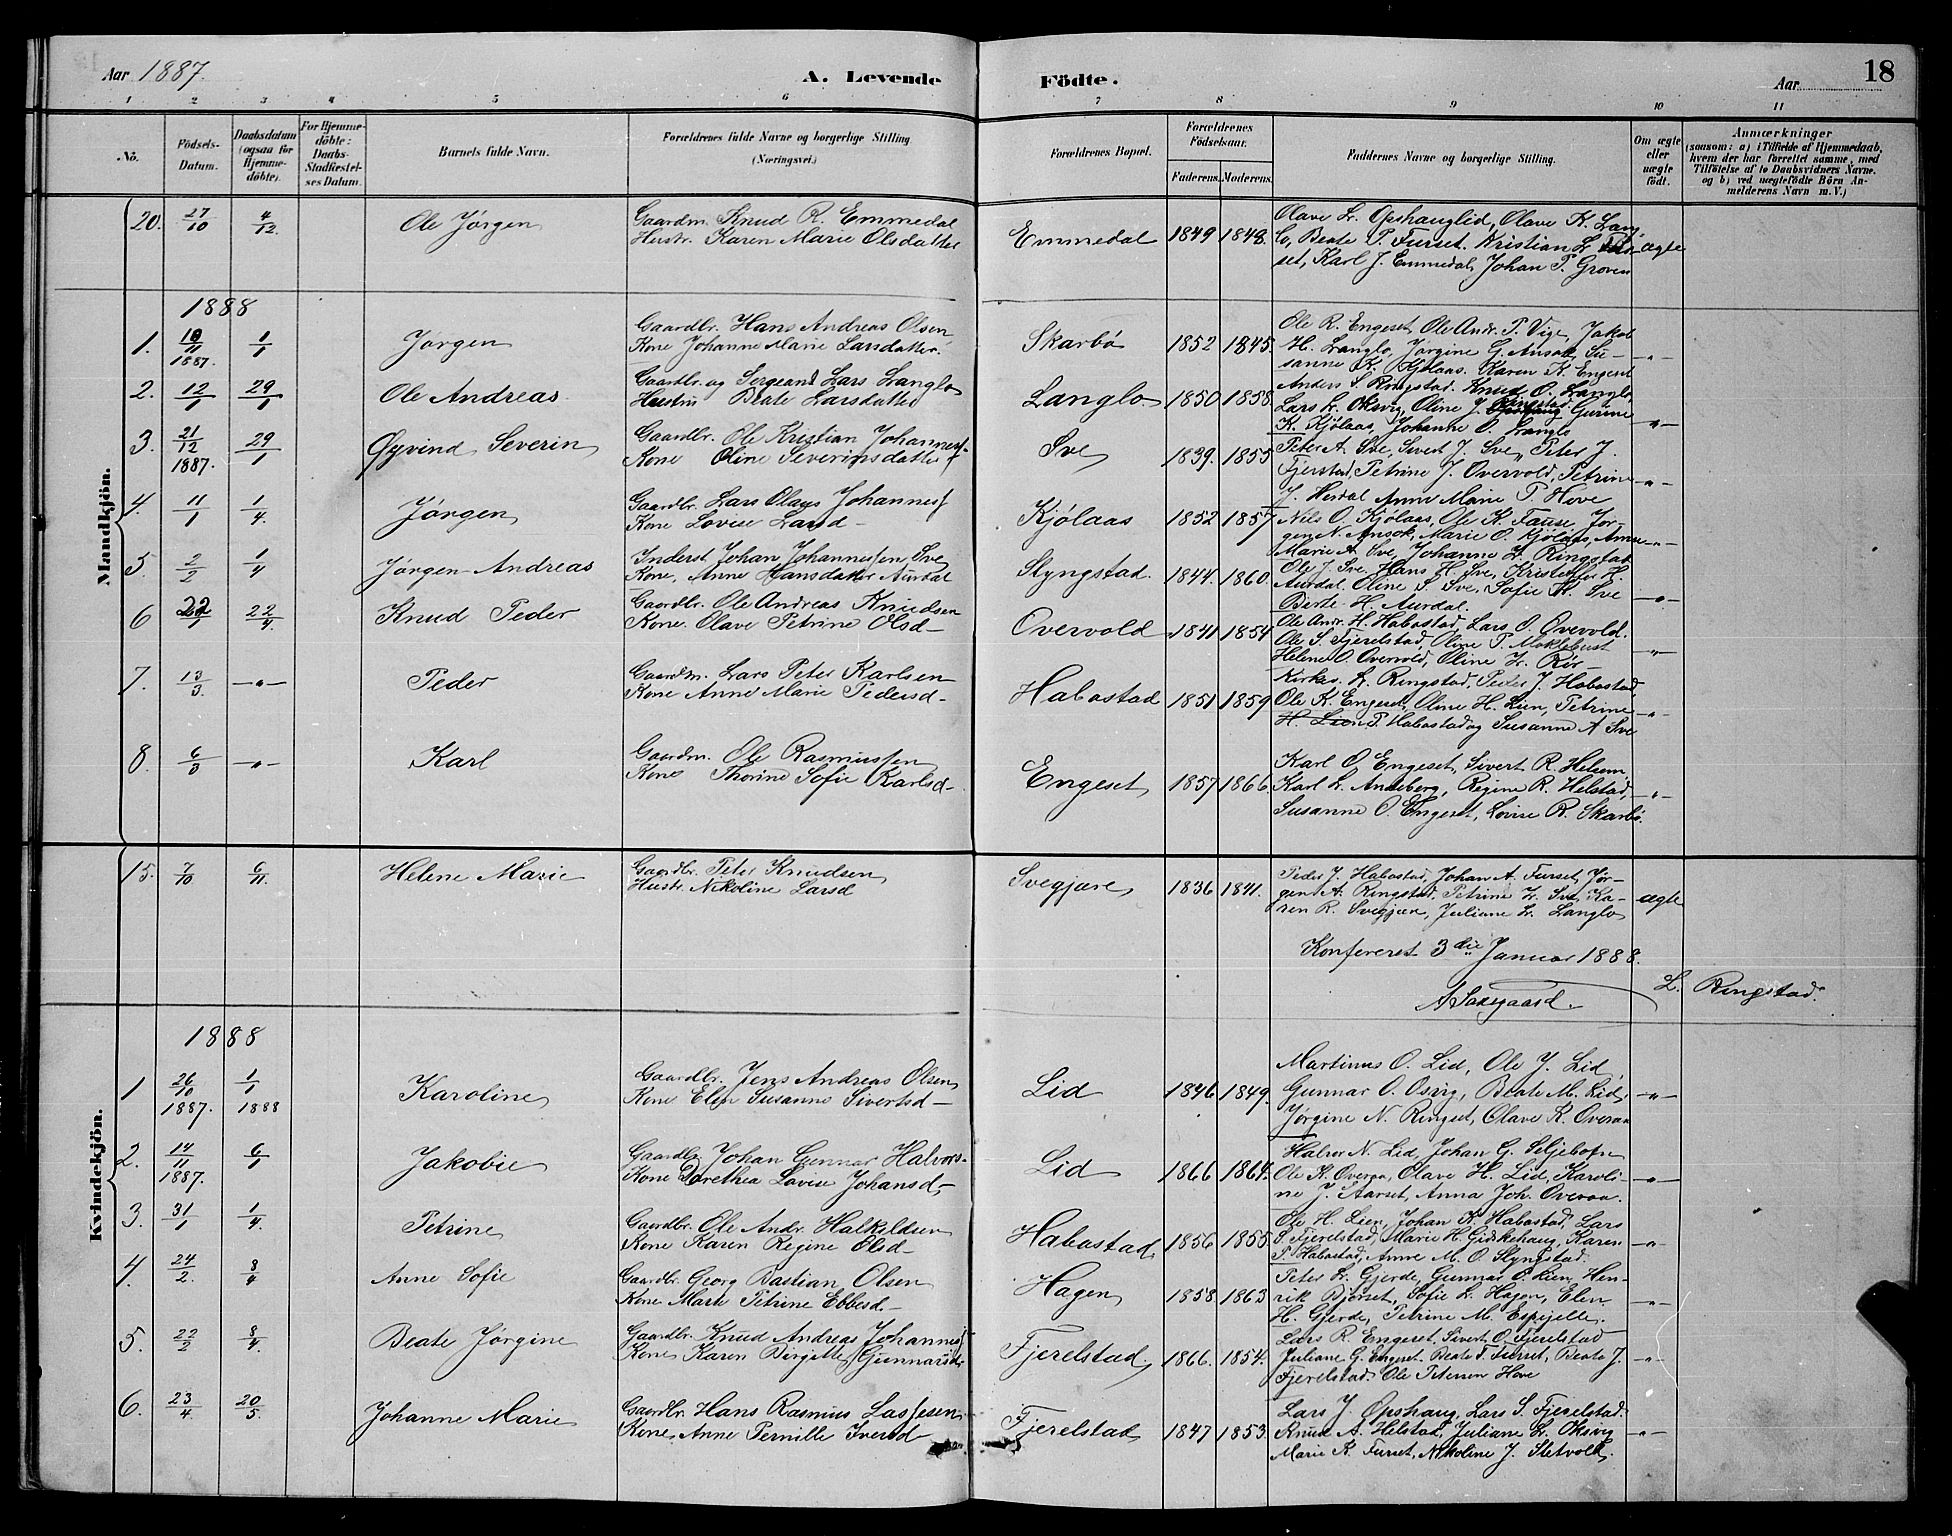 Aar 1887.
A. Levende Födte.
Aar
18
1 2 3 4 5 6 7 8 9 10 11
No.
Födsels-Datum.
Daabsdatum (ogsaa for Hjemmedöbte).
For Hjemmedöbte: Daabs-Stadfæstelses Datum.
Barnets fulde Navn.
Forældrenes fulde Navne og borgerlige Stilling (Næringsvei.)
Forældrenes Bopæl.
Forældrenes Födselsaar.
Faderens. Moderens.
Faddernes Navne og borgerlige Stilling.
Om ægte eller uægte födt.
Anmærkninger (saasom: a) i Tilfælde af Hjemmedaab, hvem der har forrettet samme, med Tilföielse af to Daabsvidners Navne. og b) ved uægtefödte Börn Anmelderens Navn m. V.)
Mandkjön.
20. 27/10 4/12 Ole Jørgen
Gaardm. Knud R. Emmedal
Hustr. Karen Marie Olsdatter
Emmedal 1849 1848.
Olave L. Opshauglid, Olave K. Lang-
lo, Beate P. Furset. Kristian L. Fur- ægte
set, Karl J. Emmedal, Johan P. Groven
1888
1. 18/11 1887. 1/1 Jørgen
Gaardbr. Hans Andreas Olsen
Kone Johanne Marie Larsdatter.
Skarbø 1852 1845.
Ole R. Engeset, Ole Andr. P. Vige, Jakob
H. Langlo, Jørgine G. Ansok, Su- -"-
sanne K. Kjølaas. Karen K. Engeset
2. 12/1 29/1 Ole Andreas
Gaardbr. og Sergeant Lars Langlo
Hustru Beate Larsdatter
Langlo 1850 1858.
Anders S. Ringstad. Knud O. Langlo,
Lars L. Oksvig, Oline J. Ringstad Gurine -"-
K. Kjølaas, Johanne O. Langlo
3. 21/12 1887. 29/1 Øyvind Severin
Gaardbr. Ole Kristian Johannes-
Kone Oline Severinsdatter
Sve 1839. 1855
Peter A. Sve, Sivert J. Sve, Peter J.
Fjerstad, Petrine J. Overvold, Petrine -"-
J. Hesdal Anne Marie P. Hove
4. 11/1 1/4. Jørgen
Gaardbr. Lars Olaus Johannes
Kone Lovise Larsd-
Kjölaas 1852 1857
Nils O. Kjölaas, Ole K. Fause, Jør-
gen N. Ansok, Marie O. Kjölaas, Anne -"-
Marie A. Sve, Johanne L. Ringstad
5. 2/2 1/4 Jørgen Andreas
Inderst Johan Johannessen Sve
Kone, Anne Hansdatter Aurdal
Slyngstad. 1844. 1860.
Ole J. Sve, Hans H. Sve, Kristoffer H.
Aurdal. Oline S. Sve, Sofie K. Sve -"-
Berte H. Aurdal.
6 22/1 22/4. Knud Peder
Gaardbr. Ole Andreas Knudsen
Kone. Olave Petrine Olsd-
Overvold 1841 1854
Ole Andr. H. Habostad, Lars O. Overvold.
Ole S. Fjerelstad, Oline P. Moklebust -"-
Helene O. Overvold, Oline L. Rør-
7. 13/3. -"- Peder
Gaardm. Lars Peter Karlsen
Kone Anne Marie Pedersd-
Habostad 1851 1859
Kirkes. L. Ringstad, Peder J. Habostad,
Ole K. Engeset, Oline H. Lien, Petrine -"-
P. Habostad og Susanne A Sve
8. 6/3 -"- Karl
Gaardm. Ole Rasmussen
Kone Thorine Sofie Karlsd-
Engeset 1857 1866
Karl O. Engeset, Sivert R. Helsem,
Karl L. Anneberg, Regine R. Helstad, -"-
Susanne O. Engeset, Lovise R. Skarbö.
Kvindekjön.
15. 7/10 6/11. Helene Marie
Gaardbr. Peter Knudsen
Hustr. Nikoline Larsd
Svegjære 1836 1841.
Peder J. Habostad, Johan A. Furset, Jør-
gen A. Ringstad, Petrine L. Sve, Ka- ægte
ren R. Svegjære, Juliane L. Langlo
Konfereret 3die Januar 1888.
A Saxegaard. L. Ringstad.
1888
1 26/10 1887. 1/1 1888 Karoline
Gaardbr. Jens Andreas Olsen
Kone Elen Susanne Sivertsd-
Lid 1846 1849.
Martinus O. Lid, Ole J. Lid,
Gunnar O. Osvig, Beate M. Lid, -"-
Jørgine N. Ringset, Olave K. Overaa
2. 14/11 1887. 6/1 Jakobie
Gaardbr. Johan Gunnar Halvors-
Kone Dorethea Lovise Johansd-
Lid 1866 1864.
Halvor N. Lid, Johan G. Seljebotn
Ole K. Overaa, Olave H. Lid, Karoli- -"-
ne J. Aarset, Anna Joh. Overaa.
3. 31/1 1/4. Petrine
Gaardbr. Ole Andr. Halkeldsen
Kone Karen Regine Olsd-
Habostad 1856 1855
Ole H. Lien, Johan K. Habostad, Lars
S. Fjerelstad, Marie H. Giskehaug, Karen -"-
P. Habostad, Anne M. O. Slyngstad.
4. 24/2. 8/4 Anne Sofie
Gaardbr. Georg Bastian Olsen
Kone Marte Petrine Ebbesd-
Hagen 1858 1863
Peter L. Gjerde, Gunnar O. Lien, Hen-
rik Bjørset, Sofie L. Hagen, Elen -"-
H. Gjerde, Petrine M. Espejelle.
5. 22/2 8/4. Beate Jørgine
Gaardbr. Knud Andreas Johannes
Kone Karen Birgitte Gunnarsd.
Fjerelstad 1866. 1854.
Lars R. Engeset, Sivert O. Fjerelstad
Juliane G. Engeset. Beate T. Furset, Beate J. -"-
Fjerelstad Ole Petersen Hove
6. 23/4 20/5. Johanne Marie
Gaardbr. Hans Rasmus Lassesen
Kone, Anne Pernille Iversd
Fjerelstad 1847 1853.
Lars J. Opshaug, Lars S. Fjerelstad.
Knud A. Helstad, Juliane L. Oksvig -"-
Marie K. Furset, Nikoline J. Sletvold,